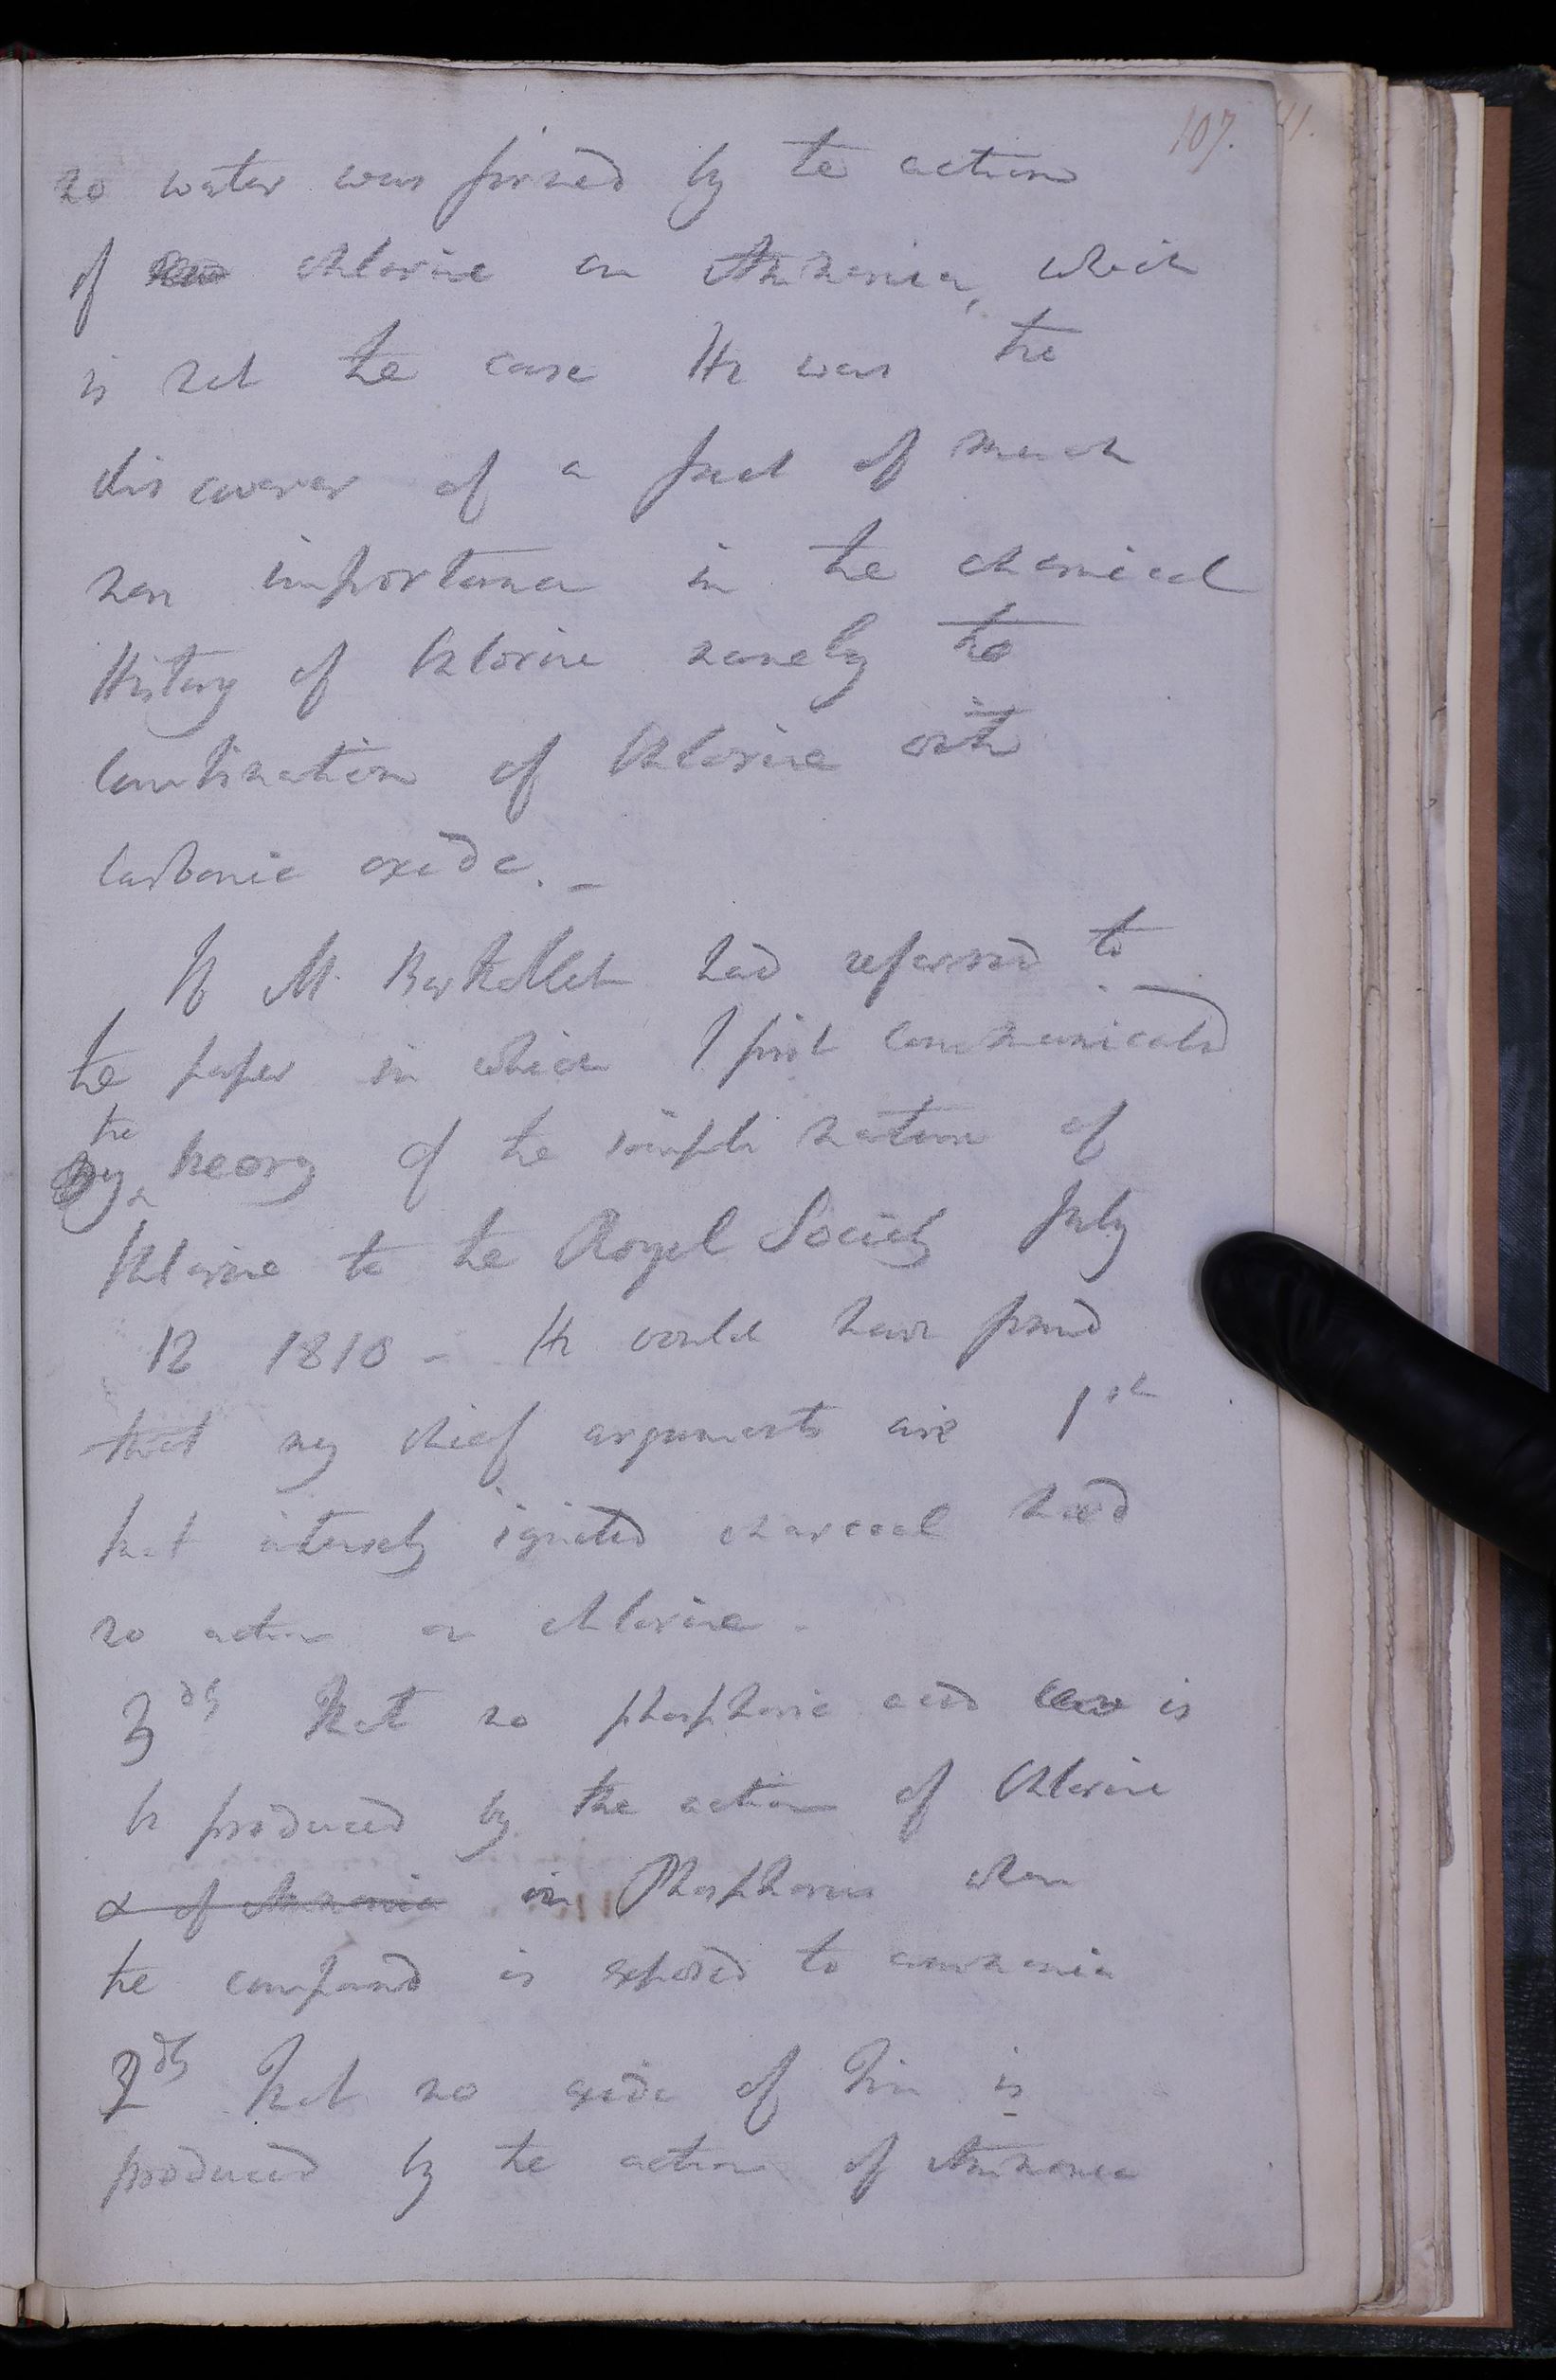 107. 41.
no water was formed by the action
of chlorine on Ammonia, which
is not the case He was the
discoverer of a fact of much
more importance in the chemical
History of Chlorine namely the
Combination of Chlorine with
Carbonic oxide. –
If M. Berthollet had referred to
the paper in which I first communicated
my the theory of the simple nature of
Chlorine to the Royal Society July
12 1810 – He would have found
that my chief arguments are 1st
that intensely ignited charcoal had
no action on chlorine –
3dly That no phosphoric acid is
be produced by the action of Chlorine
& of Ammonia on Phosphorus when
the compound is exposed to ammonia
2dly That no oxide of Tin is
produced by the action of Ammonia